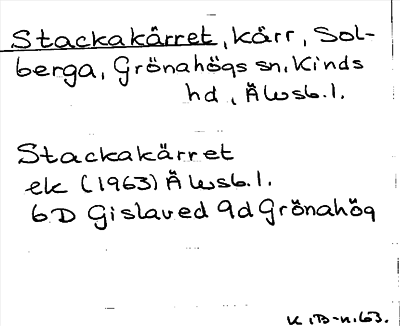 Stackakärret, kärr, Sol-
berga, Grönahögs sn, Kinds
hd, Älvsb. l.
Stackakärret
ek (1963) Älvsb. l.
6D Gislaved 9d Grönahög
K.B-n. 63.